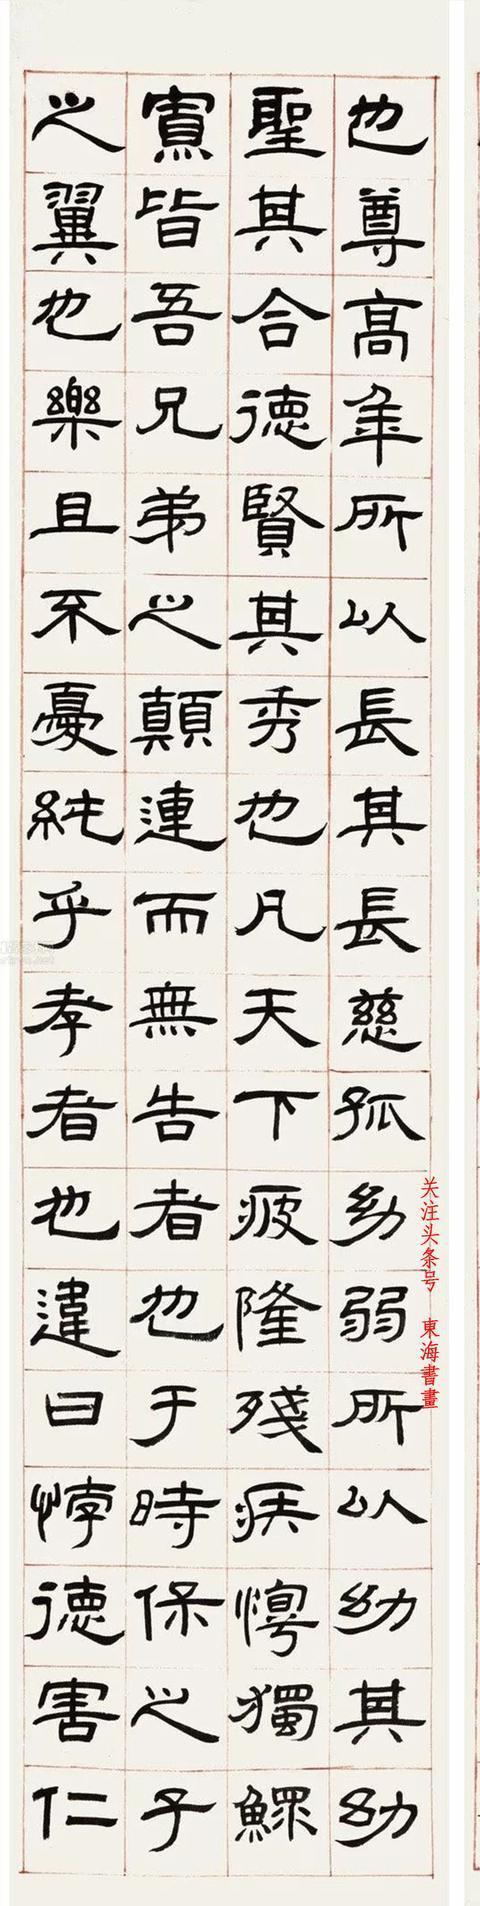 也尊高年所以長其長慈孤幼弱所以幼其幼
聖其合德賢其秀也凡天下疲隆殘疾惸獨鰥
寡皆吾兄弟之顛連而無告者也于時保之子
之翼也樂且不憂純乎孝者也違曰悖德害仁
关注头条号 東海書畫